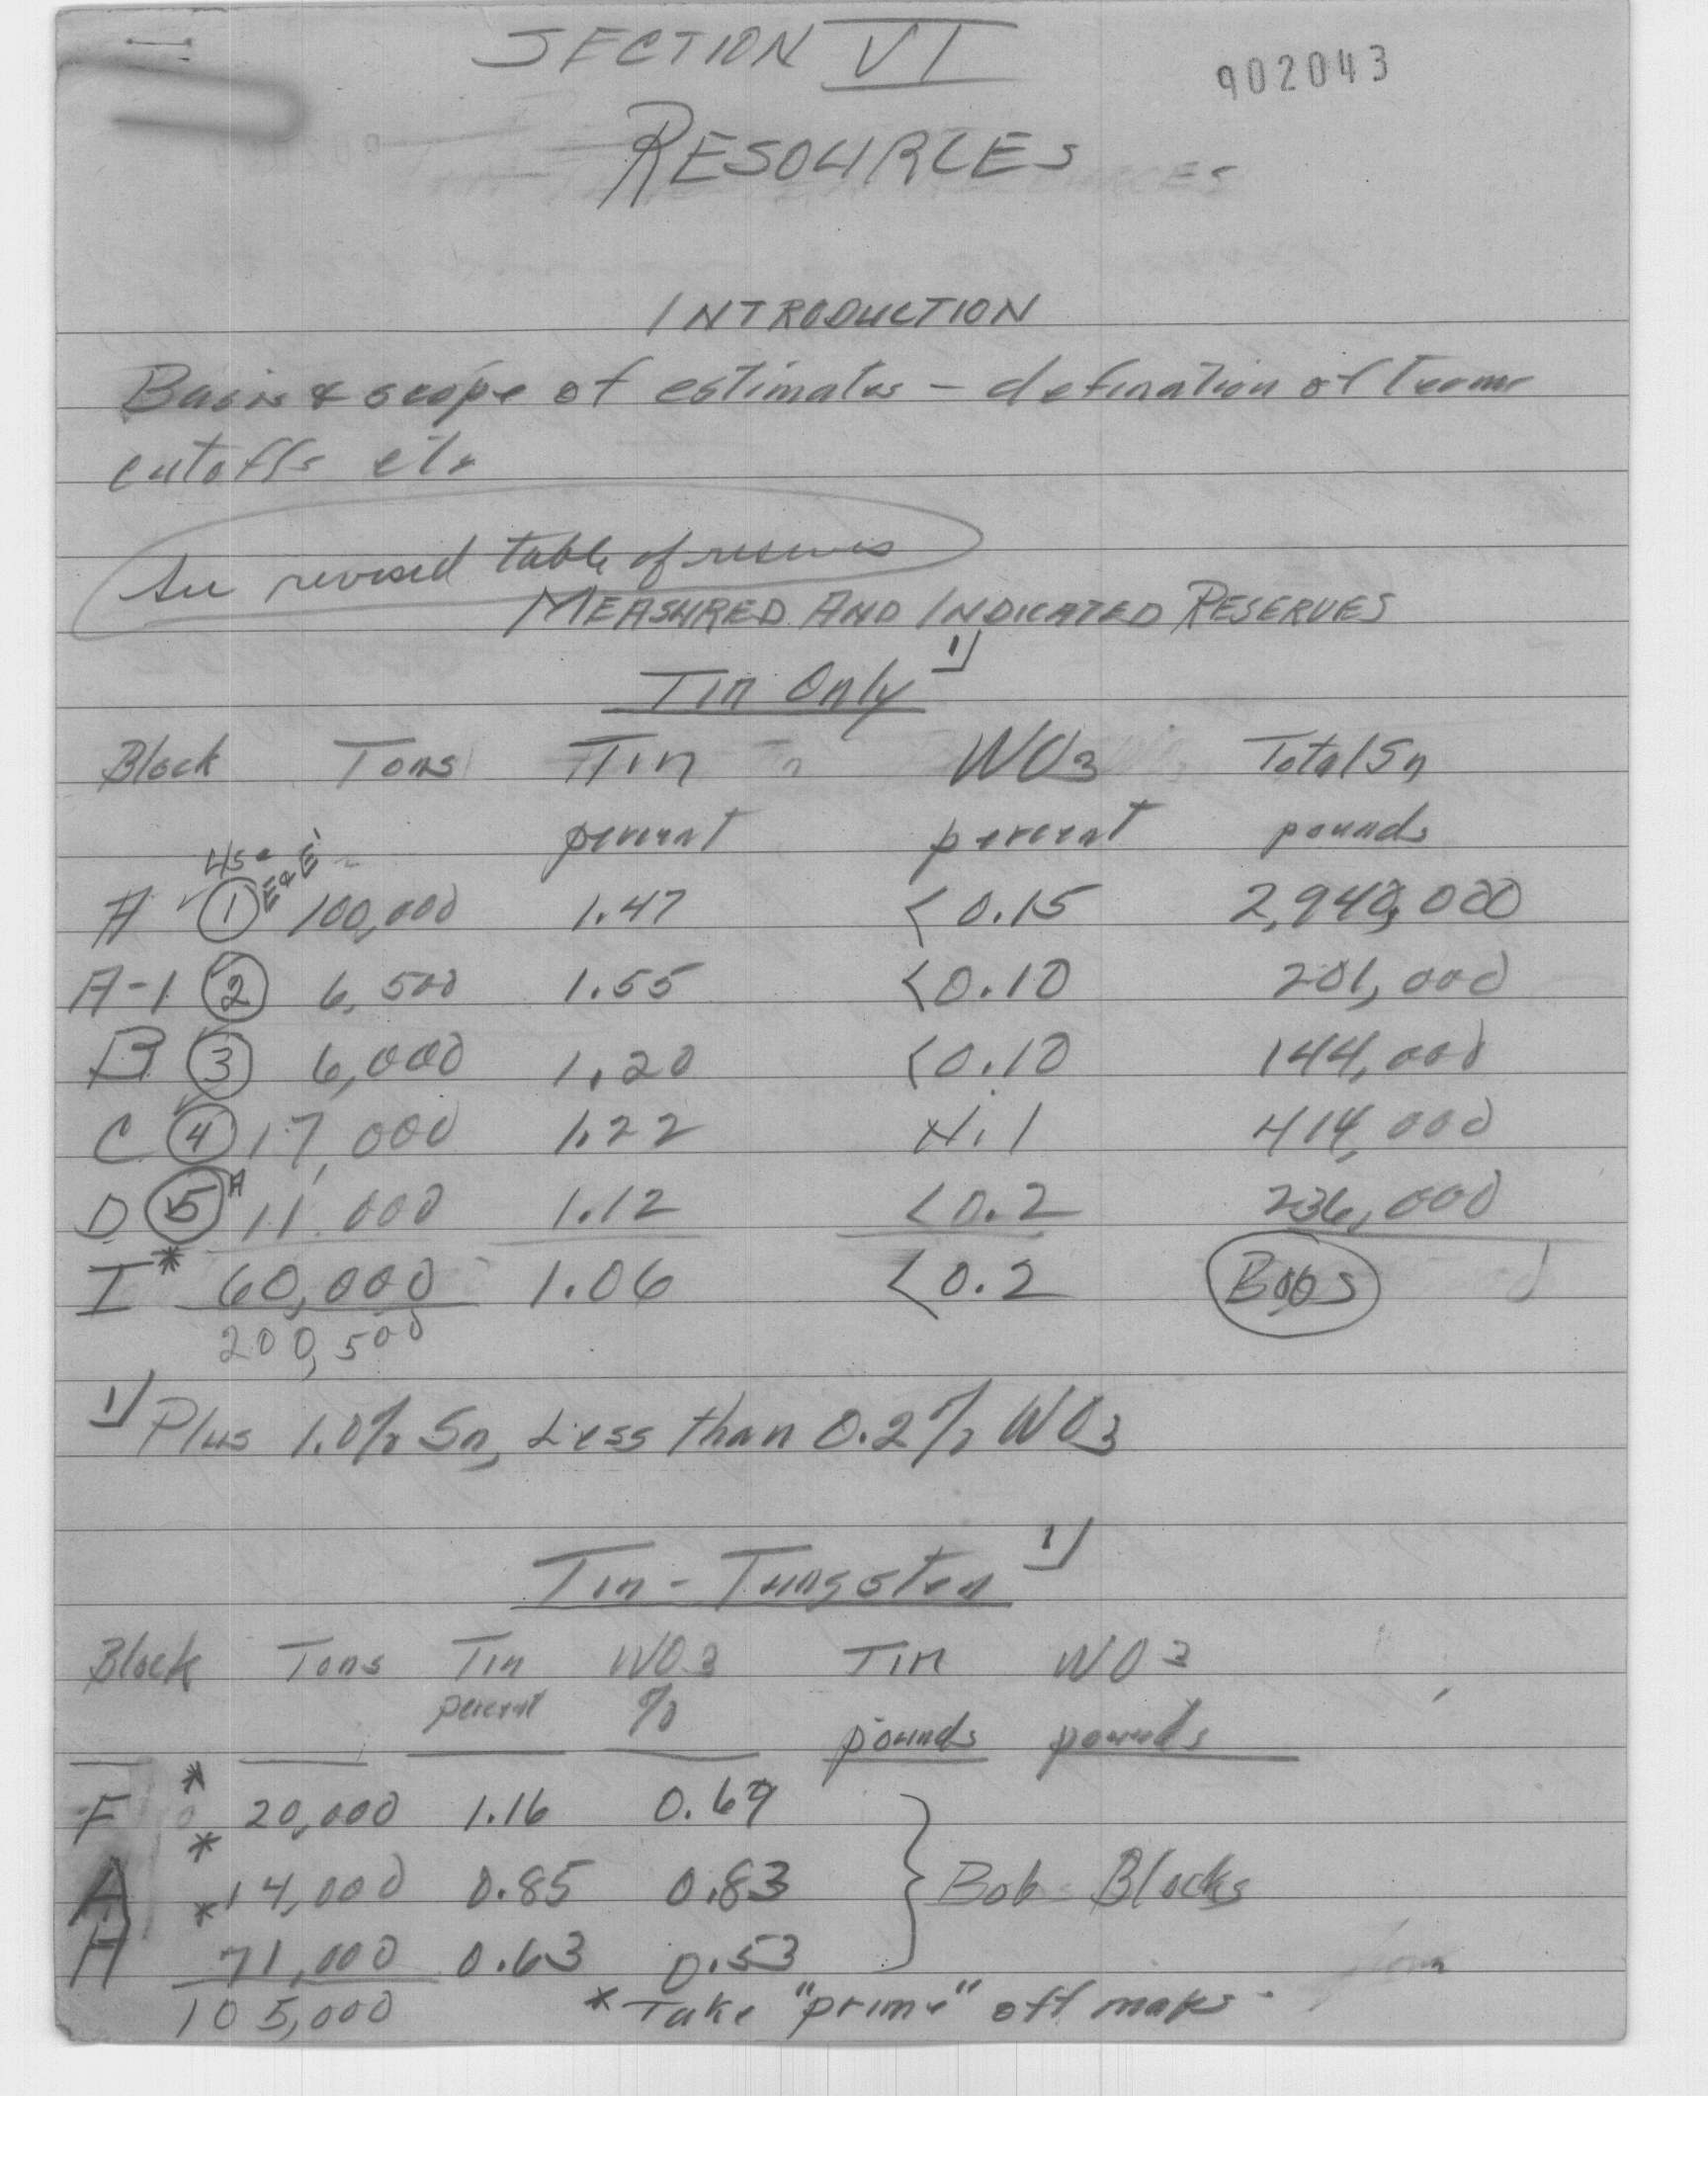 SECTION VI
902043
RESOURCES
INTRODUCTION
Basis & scope of estimates - defination of terms
cutoffs etc
See revised table of reserves
MEASURED AND INDICATED RESERVES
Tin Only 1/
Block Tons Tin WO3 Total Sn
percent percent pounds
45° E & E'
A ① 100,000 1.47 <0.15 2,940,000
A-1 ② 6,500 1.55 <0.10 201,000
B ③ 6,000 1.20 <0.10 144,000
C ④ 17,000 1.22 Nil 414,000
D ⑤ A 11,000 1.12 <0.2 236,000
I * 60,000 1.06 <0.2 Bobs
200,500
1/ Plus 1.0% Sn, Less than 0.2% WO3
Tin-Tungsten 1/
Block Tons Tin WO3 Tin WO3
percent % pounds pounds
F * 20,000 1.16 0.69
A * 14,000 0.85 0.83 } Bobs Blocks
H * 71,000 0.63 0.53
105,000 * Take "prime" off maps